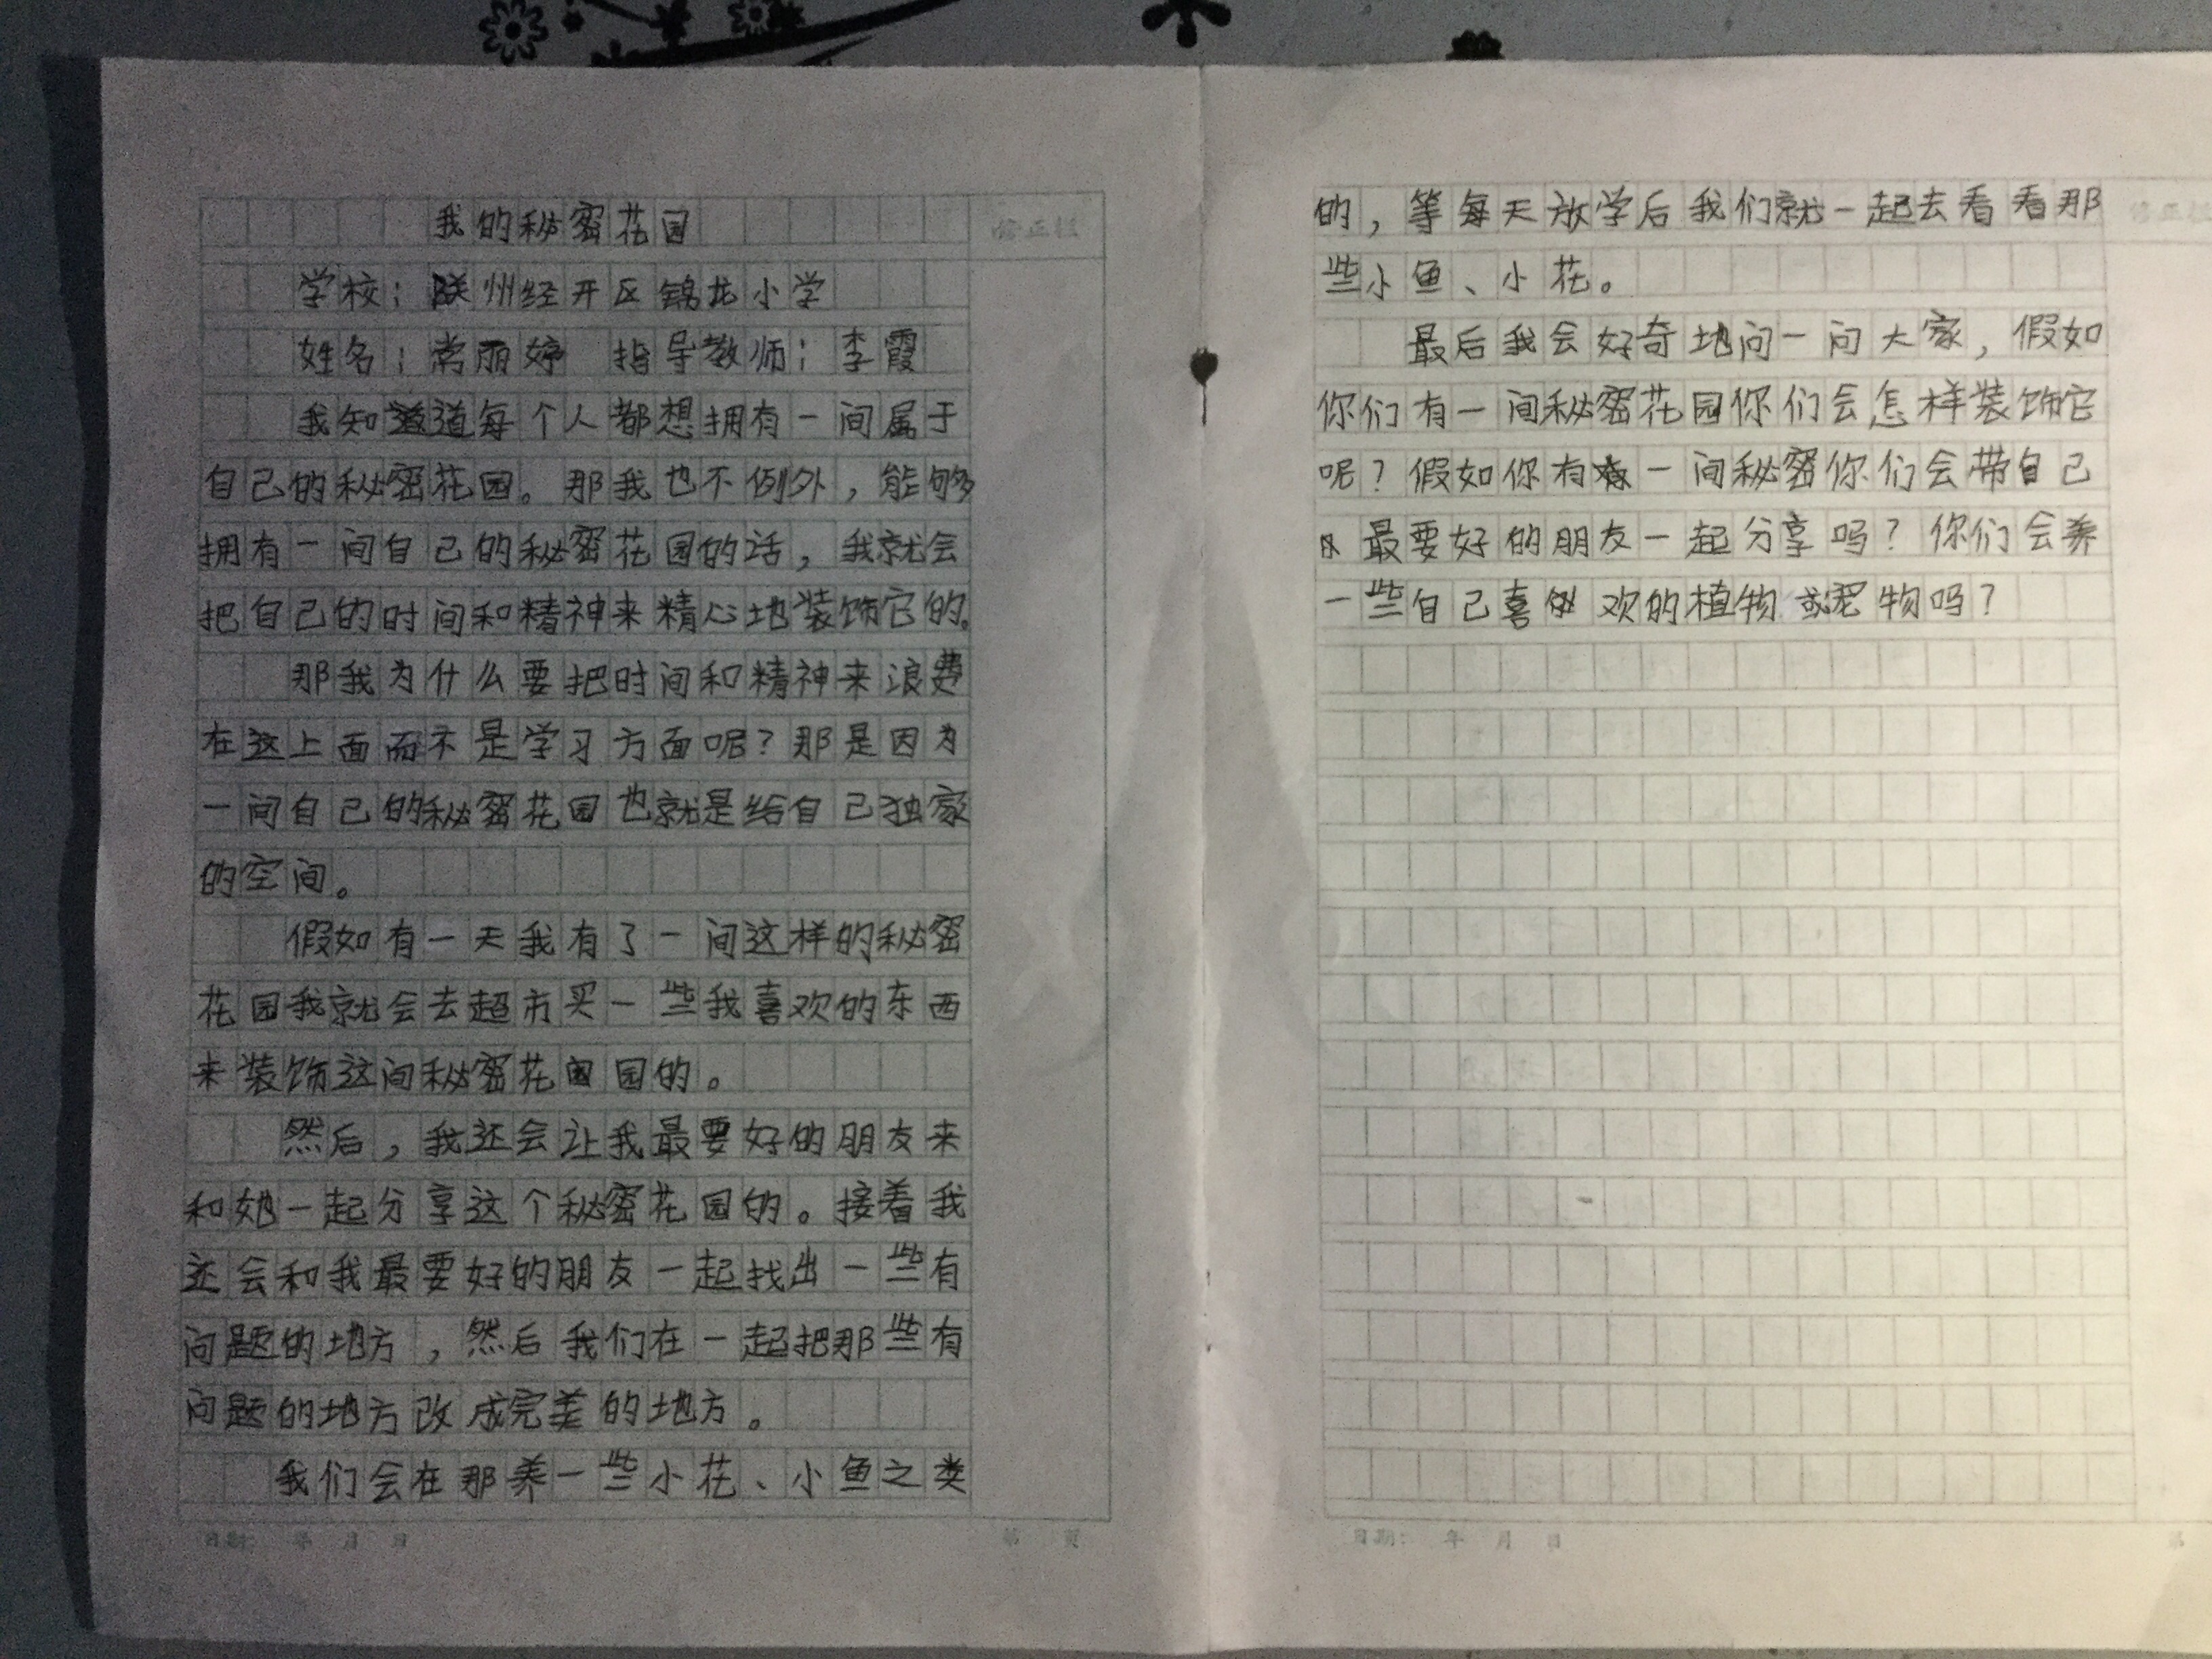 我的秘密花园
修正栏
学校：朕州经开区锦龙小学
姓名：常丽婷 指导教师：李霞
我知道道每个人都想拥有一间属于
自己的秘密花园。那我也不例外，能够
拥有一间自己的秘密花园的话，我就会
把自己的时间和精神来精心地装饰它的。
那我为什么要把时间和精神来浪费
在这上面而不是学习方面呢？那是因为
一间自己的秘密花园也就是给自己独家
的空间。
假如有一天我有了一间这样的秘密
花园我就会去超市买一些我喜欢的东西
来装饰这间秘密花园的。
然后，我还会让我最要好的朋友来
和她一起分享这个秘密花园的。接着我
还会和我最要好的朋友一起找出一些有
问题的地方，然后我们在一起把那些有
问题的地方改成完美的地方。
我们会在那养一些小花、小鱼之类
日期： 年 月 日 第 页
的，等每天放学后我们就一起去看看那
修正栏
些小鱼、小花。
最后我会好奇地问一问大家，假如
你们有一间秘密花园你们会怎样装饰它
呢？假如你有一间秘密你们会带自己
最要好的朋友一起分享吗？你们会养
一些自己喜欢的植物或宠物吗？
日期： 年 月 日 第